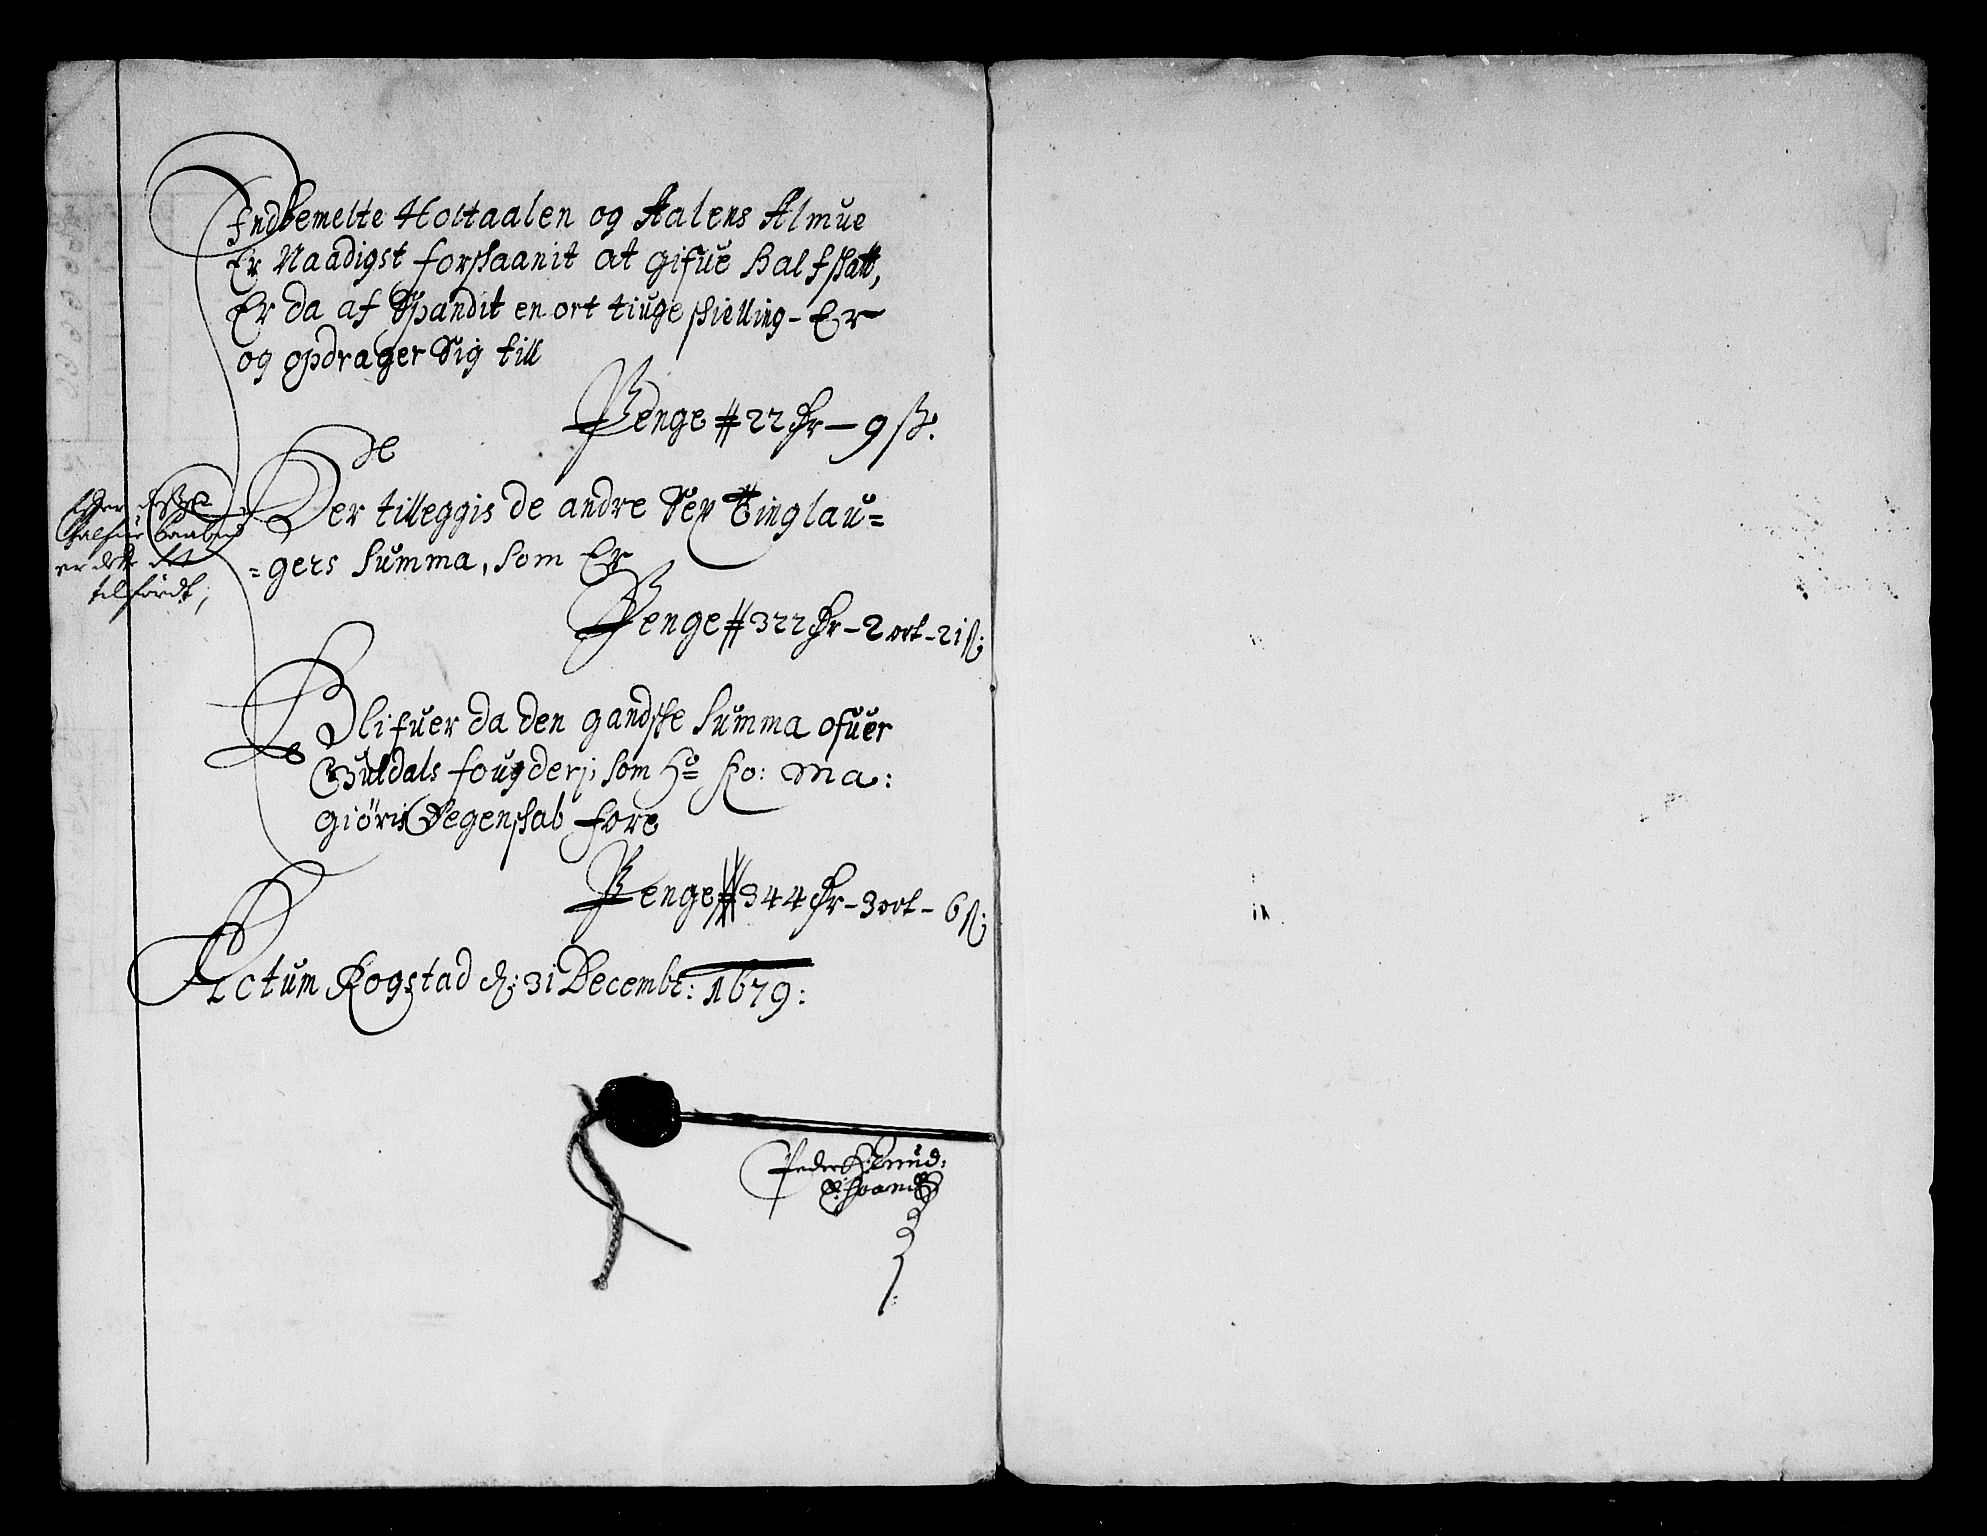 Indbemelte Holtaalen og Aalens Almue
Er Naadigst forskaanit at gifue Half skatt,
Er da af Spandit en ort tiuge skielling - Er
og opdrager Sig till
Penge # 22 Dr — 9 ß.
Der tilleggis de andre Sex Tinglau=
=gers Summa, som Er
Penge # 322 Dr - 2 ort - 21 ß:
er dette
tilførdt,
Blifuer da den gandske Summa ofuer
Guldals fougderj, som Hs Ko: Ma:
giöris Regenskab fore
Penge # 344 Dr - 3 ort - 6 ß:
Actum Rogstad d: 31 Decembr: 1679:
Peder